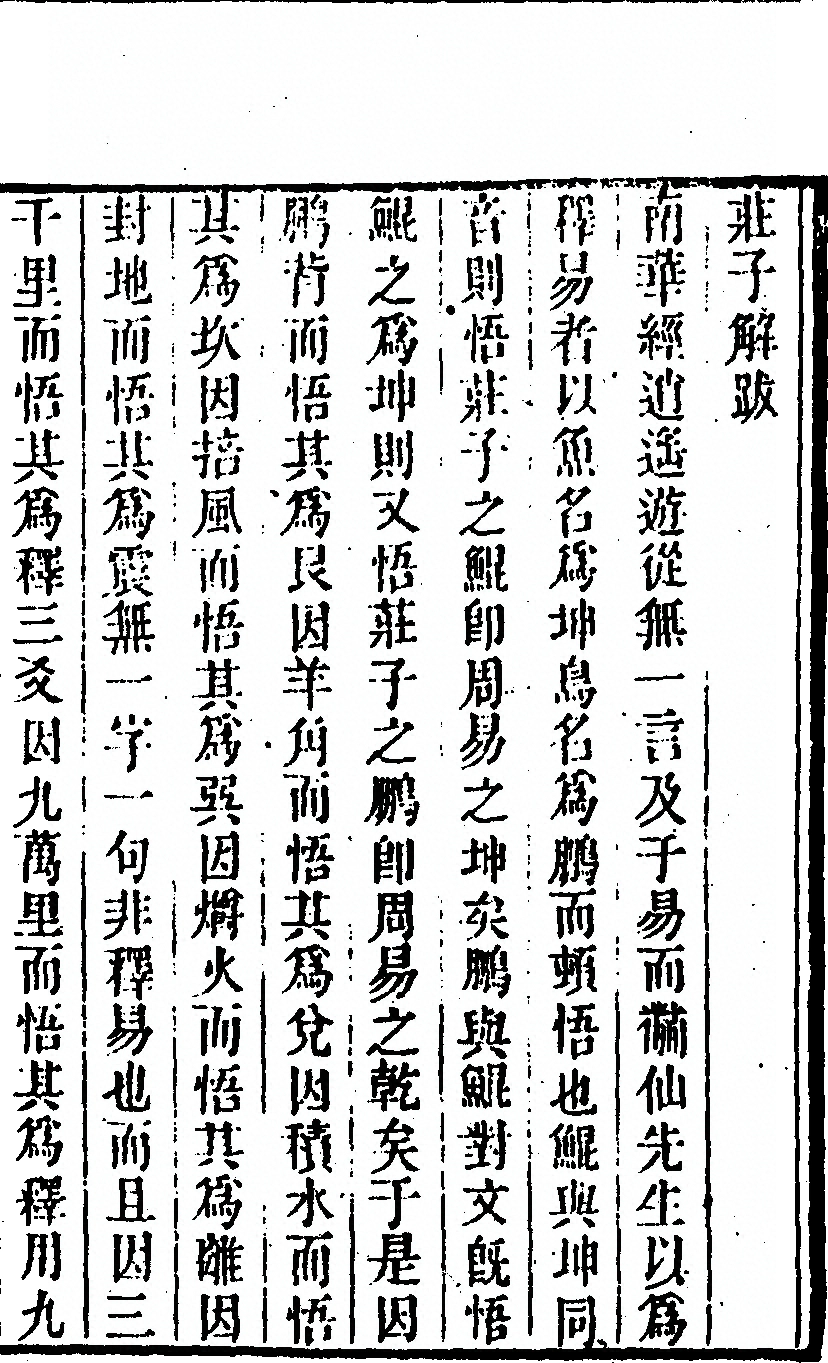 莊子解跋
南華經逍遙遊從無一言及于易而黼仙先生以爲
釋易者以魚名爲坤鳥名爲鵬而頓悟也鯤與坤同
音則悟莊子之鯤卽周易之坤矣鵬與鯤對文旣悟
鯤之爲坤則又悟莊子之鵬卽周易之乾矣于是因
鵬背而悟其爲艮因羊角而悟其爲兌因積水而悟
其爲坎因掊風而悟其爲巽因爝火而悟其爲離因
封地而悟其爲震無一字一句非釋易也而且因三
千里而悟其爲釋三爻因九萬里而悟其爲釋用九